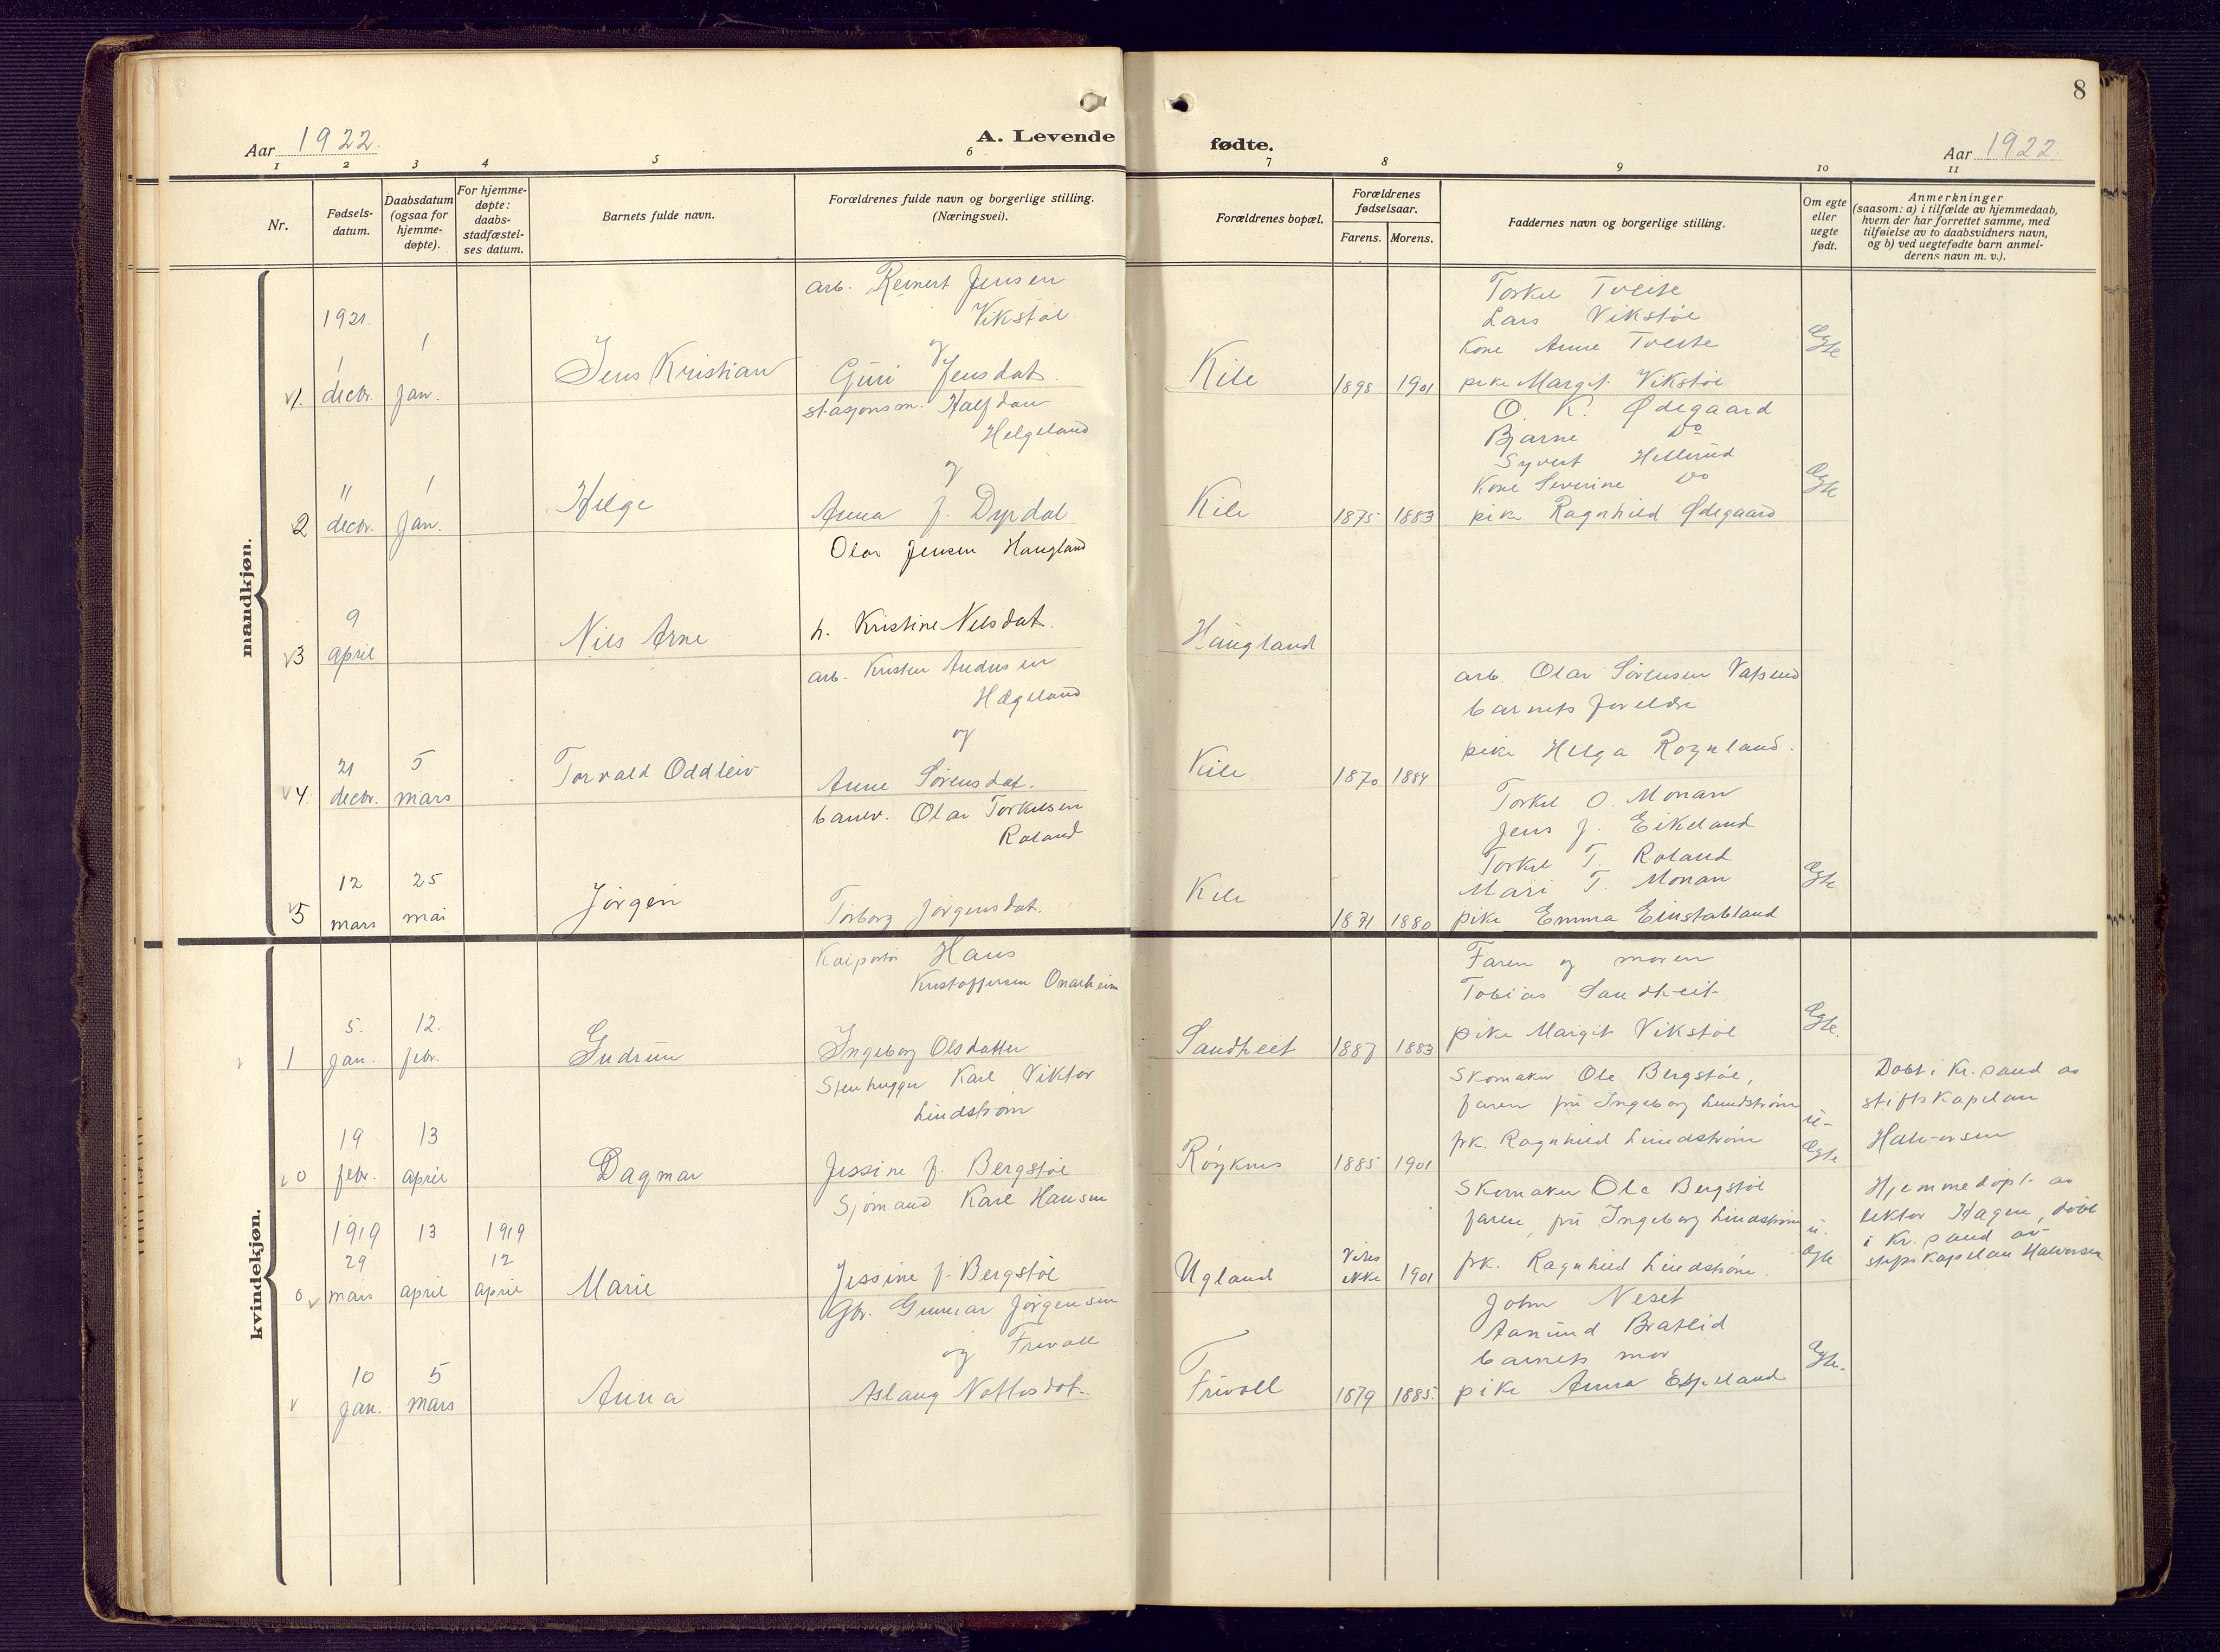 8
Aar 1922.
A. Levende
fødte.
Aar 1922.
1 2 3 4 5 6 7 8 9 10 11
Nr.
Fødsels-
datum.
Daabsdatum
(ogsaa for
hjemme-
døpte).
For hjemme-
døpte:
daabs-
stadfæstel-
ses datum.
Barnets fulde navn.
Forældrenes fulde navn og borgerlige stilling.
(Næringsvei).
Forældrenes bopæl.
Forældrenes
fødselsaar.
Farens. Morens.
Faddernes navn og borgerlige stilling.
Om egte
eller
uegte
født.
Anmerkninger
(saasom: a) i tilfælde av hjemmedaab,
hvem der har forrettet samme, med
tilføielse av to daabsvidners navn,
og b) ved uegtefødte barn anmel-
derens navn m. v.).
mandkjøn.
1.
1921.
1
decbr.
1
jan.
Jens Kristian
arb. Reinert Jensen
Vikstøl
og
Guri Jensdat.
Kile
1898 1901
Torkel Tveite
Lars Vikstøl
Kone Anne Tveite
pike Margit Vikstøl
Ægte
2
11
decbr.
1
Jan.
Helge
stasjonsm. Halfdan
Helgeland
og
Anna J. Dyrdal
Kile
1875 1883
O. K. Ødegaard
Bjarne Do
Syvert Hellerud
Kone Severine Do
pike Ragnhild Ødegaard
Ægte
3
9
april
Nils Arne
Olav Jensen Haugland
h. Kristine Nilsdat.
Haugland
4.
21
decbr.
5
mars
Torvald Oddleiv
arb. Kristen Andersen
Hægeland
og
Anne Sørensdat.
Kile
1870 1884
arb. Olav Sørensen Vatsend
barnets foreldre
pike Helga Røynland.
5
12
mars
25
mai
Jørgen
banev. Olav Torkelsen
Røland
Torborg Jørgensdat.
Kile
1871 1880
Torkel O. Monan
Jens J. Eikeland
Torkel T. Røland
Mari T. Monan
pike Emma Einstabland
Ægte
kvindekjøn.
1
5.
jan.
12.
febr.
Gudrun
Hans
Kristoffersen Onarheim
Ingeborg Olsdatter
Sandheit
1887 1883
Faren og moren
Tobias Sandheit
pike Margit Vikstøl
Ægte.
0
19
febr.
13
april
Dagmar
Stenhugger Karl Viktor
Lindstrøm
Jessine J. Bergstøl
Røyknes
1885 1901
Skomaker Ole Bergstøl,
faren fru Ingeborg Lindstrøm
frk. Ragnhild Lindstrøm
u-
ægte
Døbt i Kr.sand av
stiftskapelan
Halvorsen
0
1919
29
mars
13
april
1919
12
april
Marie
Sjømand Karl Hansen
Jessine J. Bergstøl
Ugland
Vites
ikke
1901
Skomaker Ole Bergstøl
faren, fru Ingeborg Lindstrøm
frk. Ragnhild Lindstrøm.
u-
ægte
Hjemmedøpt av
lektor Hagen, døbt
i Kr.sand av
stiftskapelan Halvorsen
10
jan.
5
mars
Anna
Gbr. Gunnar Jørgensen
og Frivoll
Aslaug Nottosdat.
Frivoll
1879 1885.
John Neset
Aanund Bratlid
barnets mor
pike Anna Espeland
Ægte.